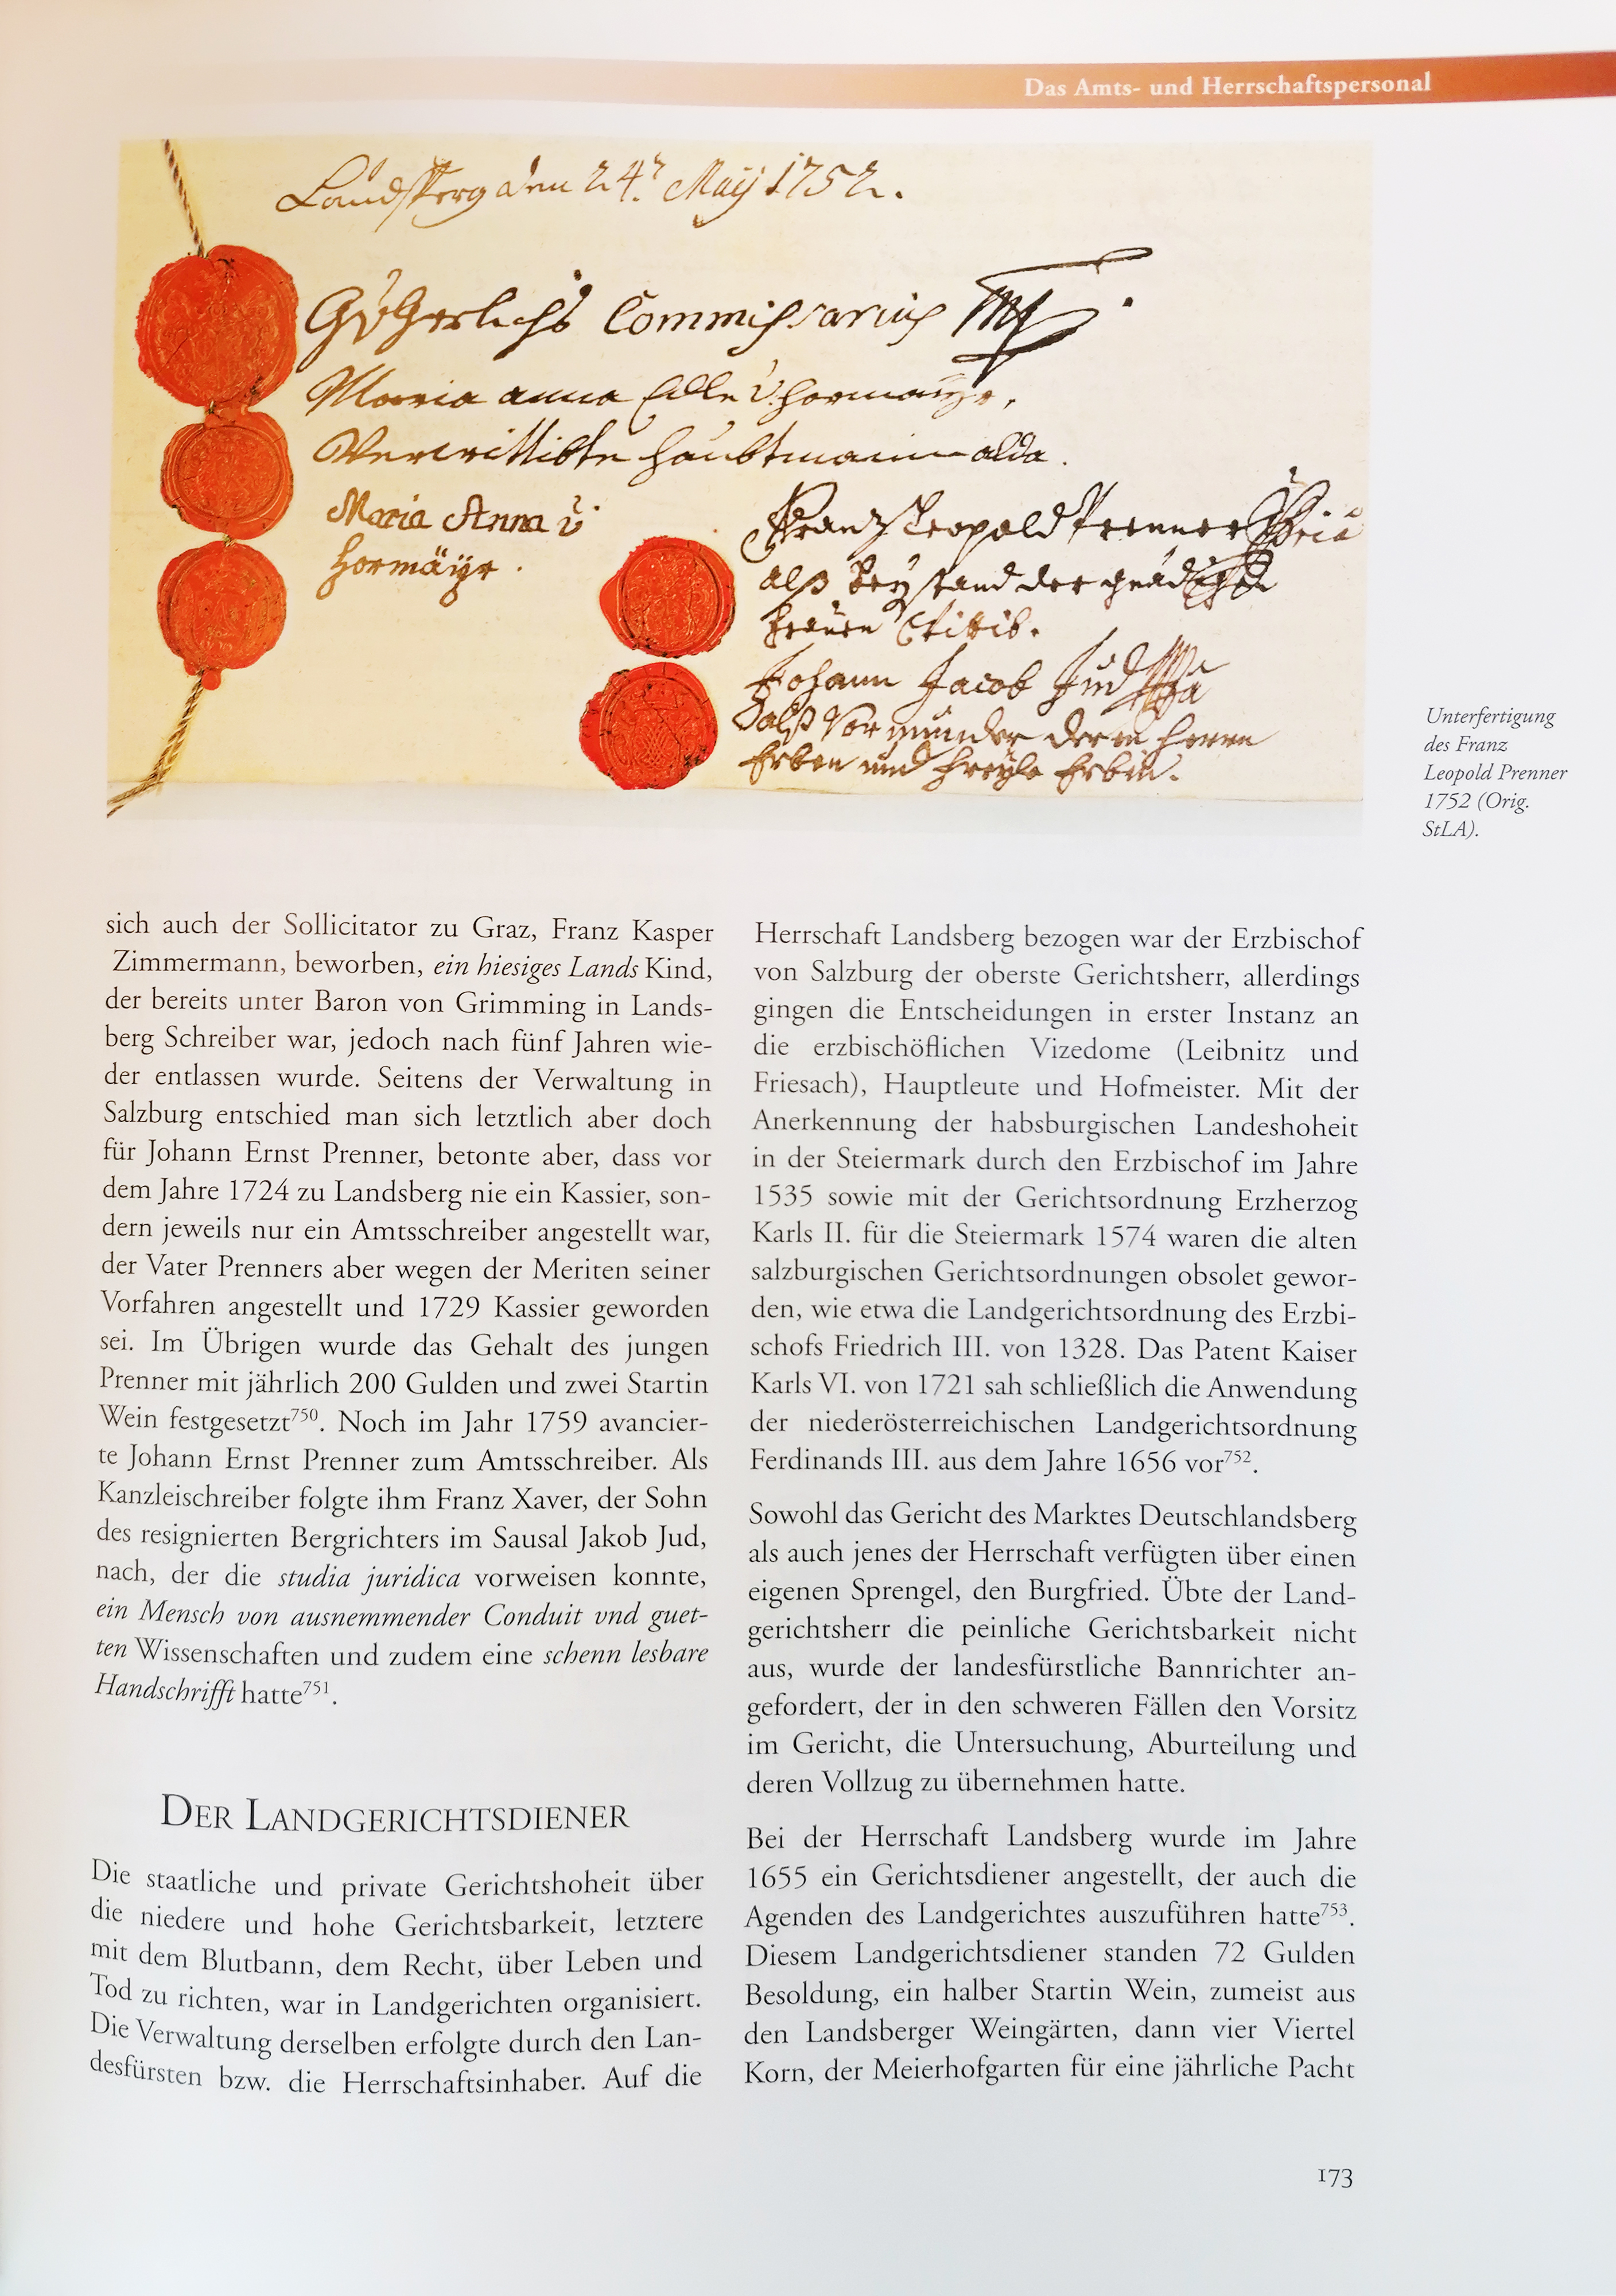 Das Amts- und Herrschaftspersonal
Landsperg den 24. Maÿ 1752.
Commissarius
Maria anna Edle v. hormaÿr,
Verwittibte haubtmanin alda.
Maria Anna v.
hormäÿr.
Franz Leopold Prenner
alß beÿstand der gnädigen
frauen Wittib.
Johann Jacob Jud
alß Vormunder deren herrn
Erben und freÿle Erbin.
Unterfertigung
des Franz
Leopold Prenner
1752 (Orig.
StLA).
sich auch der Sollicitator zu Graz, Franz Kasper
Zimmermann, beworben, ein hiesiges Lands Kind,
der bereits unter Baron von Grimming in Lands-
berg Schreiber war, jedoch nach fünf Jahren wie-
der entlassen wurde. Seitens der Verwaltung in
Salzburg entschied man sich letztlich aber doch
für Johann Ernst Prenner, betonte aber, dass vor
dem Jahre 1724 zu Landsberg nie ein Kassier, son-
dern jeweils nur ein Amtsschreiber angestellt war,
der Vater Prenners aber wegen der Meriten seiner
Vorfahren angestellt und 1729 Kassier geworden
sei. Im Übrigen wurde das Gehalt des jungen
Prenner mit jährlich 200 Gulden und zwei Startin
Wein festgesetzt⁷⁵⁰. Noch im Jahr 1759 avancier-
te Johann Ernst Prenner zum Amtsschreiber. Als
Kanzleischreiber folgte ihm Franz Xaver, der Sohn
des resignierten Bergrichters im Sausal Jakob Jud,
nach, der die studia juridica vorweisen konnte,
ein Mensch von ausnemmender Conduit vnd guet-
ten Wissenschaften und zudem eine schenn lesbare
Handschrifft hatte⁷⁵¹.
DER LANDGERICHTSDIENER
Die staatliche und private Gerichtshoheit über
die niedere und hohe Gerichtsbarkeit, letztere
mit dem Blutbann, dem Recht, über Leben und
Tod zu richten, war in Landgerichten organisiert.
Die Verwaltung derselben erfolgte durch den Lan-
desfürsten bzw. die Herrschaftsinhaber. Auf die
Herrschaft Landsberg bezogen war der Erzbischof
von Salzburg der oberste Gerichtsherr, allerdings
gingen die Entscheidungen in erster Instanz an
die erzbischöflichen Vizedome (Leibnitz und
Friesach), Hauptleute und Hofmeister. Mit der
Anerkennung der habsburgischen Landeshoheit
in der Steiermark durch den Erzbischof im Jahre
1535 sowie mit der Gerichtsordnung Erzherzog
Karls II. für die Steiermark 1574 waren die alten
salzburgischen Gerichtsordnungen obsolet gewor-
den, wie etwa die Landgerichtsordnung des Erzbi-
schofs Friedrich III. von 1328. Das Patent Kaiser
Karls VI. von 1721 sah schließlich die Anwendung
der niederösterreichischen Landgerichtsordnung
Ferdinands III. aus dem Jahre 1656 vor⁷⁵².
Sowohl das Gericht des Marktes Deutschlandsberg
als auch jenes der Herrschaft verfügten über einen
eigenen Sprengel, den Burgfried. Übte der Land-
gerichtsherr die peinliche Gerichtsbarkeit nicht
aus, wurde der landesfürstliche Bannrichter an-
gefordert, der in den schweren Fällen den Vorsitz
im Gericht, die Untersuchung, Aburteilung und
deren Vollzug zu übernehmen hatte.
Bei der Herrschaft Landsberg wurde im Jahre
1655 ein Gerichtsdiener angestellt, der auch die
Agenden des Landgerichtes auszuführen hatte⁷⁵³.
Diesem Landgerichtsdiener standen 72 Gulden
Besoldung, ein halber Startin Wein, zumeist aus
den Landsberger Weingärten, dann vier Viertel
Korn, der Meierhofgarten für eine jährliche Pacht
173